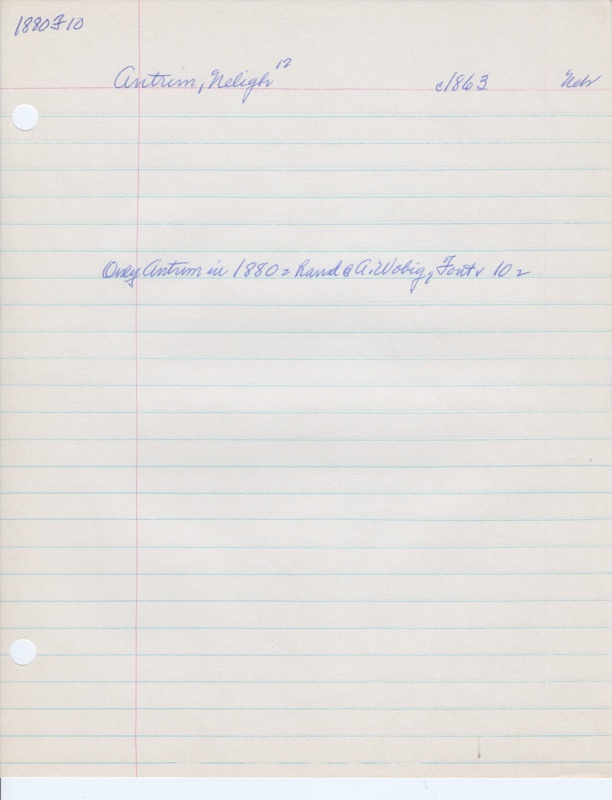 1880 F 10
Antrim, Neligh 12 c1863 Neb
Only Antrim in 1880 = Rand & A. Wobig, 10 =